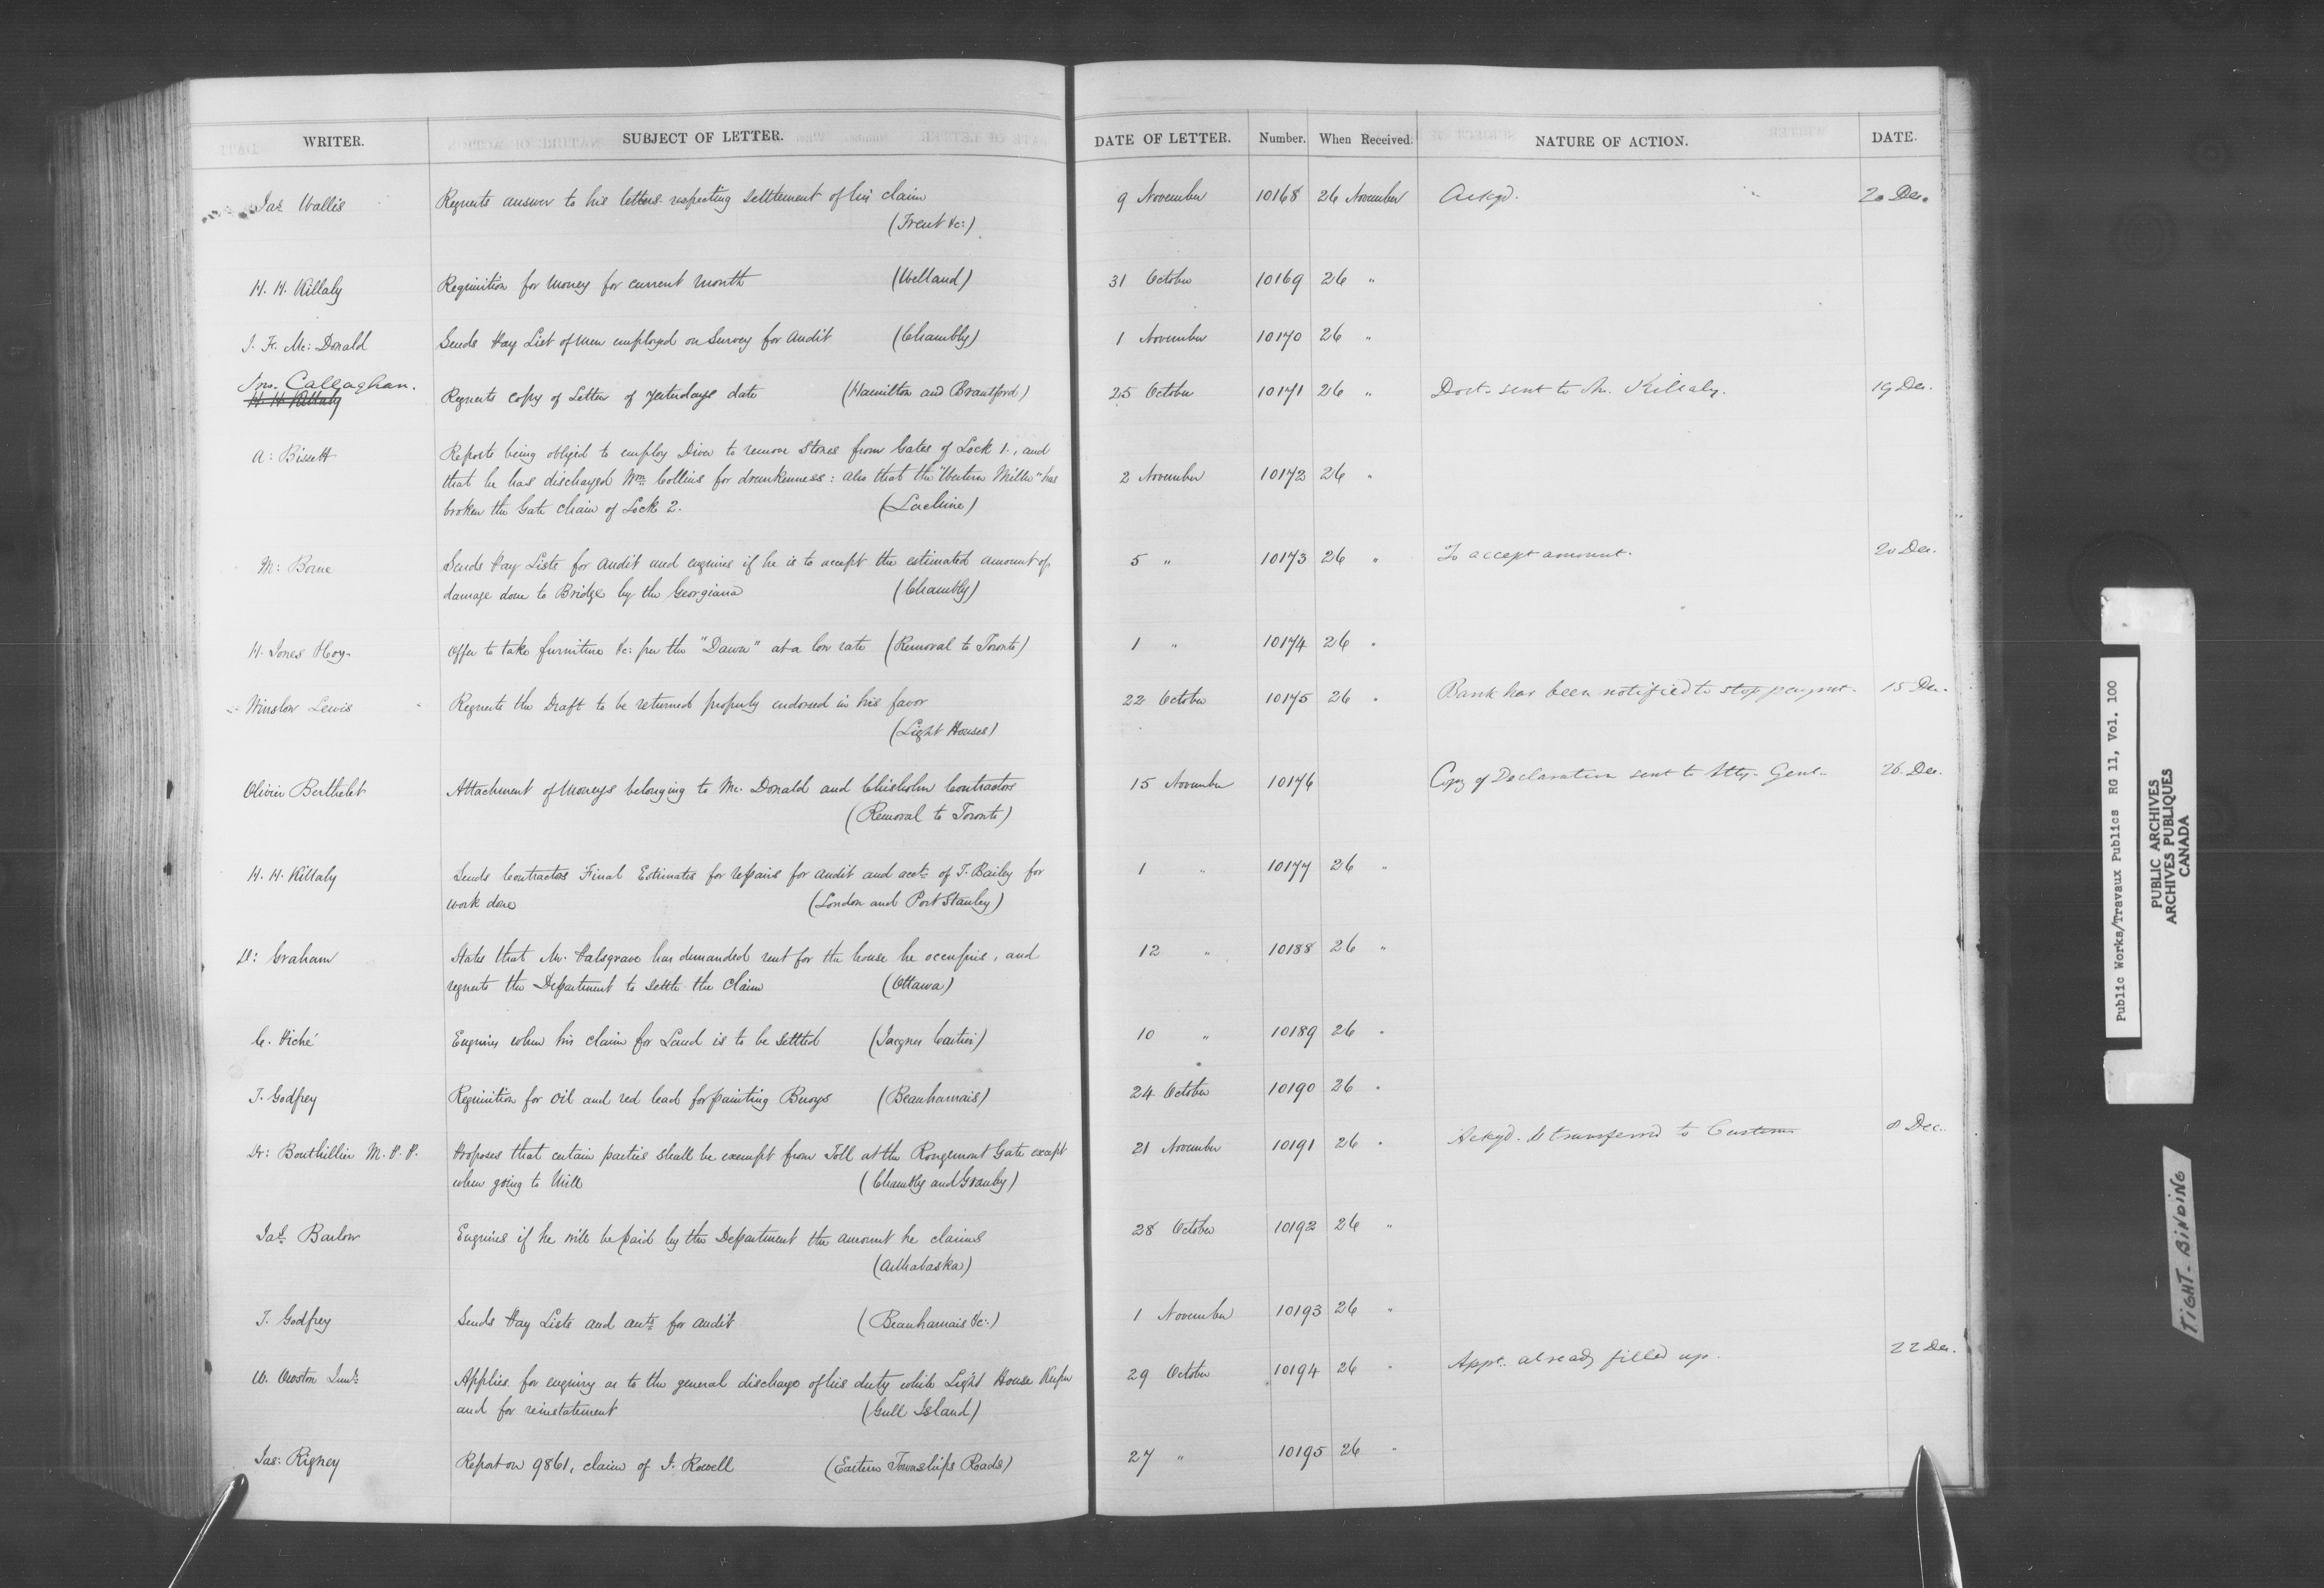 WRITER. SUBJECT OF LETTER. DATE OF LETTER. Number. When Received. NATURE OF ACTION. DATE.
Jas Wallis Requests answer to his letters respecting settlement of his claim 9 November 10168 26 November Ackgd. 20 Dec.
(Trent &c:)
H. H. Killaly Requisition for Money for current month (Welland) 31 October 10169 26 "
J. F. Mc: Donald Sends Pay List of Men employed on Survey for Audit (Chambly) 1 November 10170 26 "
Jno. Callaghan.
H. H. Killaly Requests copy of Letter of yesterdays date (Hamilton and Brantford) 25 October 10171 26 " Doct. sent to Mr. Killaly. 19 Dec.
A: Bissett Reports being obliged to employ Diver to remove Stones from Gates of Lock 1., and
that he has discharged Wm Collins for drunkenness: also that the "Western Miller" has 2 November 10172 26 "
broken the Gate chain of Lock 2. (Lachine)
M: Borne Sends Pay Lists for Audit and enquires if he is to accept the estimated amount of 5 " 10173 26 " To accept amount. 20 Dec.
damage done to Bridge by the Georgiana (Chambly)
H. Jones Hoy Offer to take furniture &c: per the "Dawn" at a low rate (Removal to Toronto) 1 " 10174 26 "
Winslow Lewis Requests the Draft to be returned properly endorsed in his favor 22 October 10175 26 " Bank has been notified to stop paymt. 15 Dec.
(Light Houses)
Olivier Berthelet Attachment of Moneys belonging to Mc. Donald and Chisholm Contractors 15 November 10176 Copy of Declaration sent to Atty. Genl. 26. Dec.
(Removal to Toronto)
H. H. Killaly Sends Contractors Final Estimates for repairs for audit and acct of T. Bailey for 1 " 10177 26 "
work done (London and Port Stanley)
D: Graham States that Mr. Halsgrave has demanded rent for the house he occupies, and 12 " 10188 26 "
requests the Department to settle the claim (Ottawa)
C. Piché Enquires when his claim for Land is to be settled (Jacques Cartier) 10 " 10189 26 "
T. Godfrey Requisition for Oil and red lead for painting Buoys (Beauharnais) 24 October 10190 26 "
Dr: Bouthillier M. P. P. Proposes that certain parties shall be exempt from Toll at the Rougemont Gate except 21 November 10191 26 " Ackgd. & transferred to Customs 8 Dec.
when going to Mill (Chambly and Granby)
Jas. Barlow Enquires if he will be paid by the Department the amount he claims 28 October 10192 26 "
(Arthabaska)
T. Godfrey Sends Pay Lists and accts for audit (Beauharnais &c:) 1 November 10193 26 "
W. Owston Junr: Applies for enquiry as to the general discharge of his duty while Light House Keeper 29 October 10194 26 " Appt. already filled up. 22 Dec.
and for reinstatement (Gull Island)
Jas: Rigney Report on 9861, claim of J. Rowell (Eastern Townships Roads) 27 " 10195 26 "
Public Works/Travaux Publics RG 11, Vol. 100
PUBLIC ARCHIVES
ARCHIVES PUBLIQUES
CANADA
TIGHT-BINDING